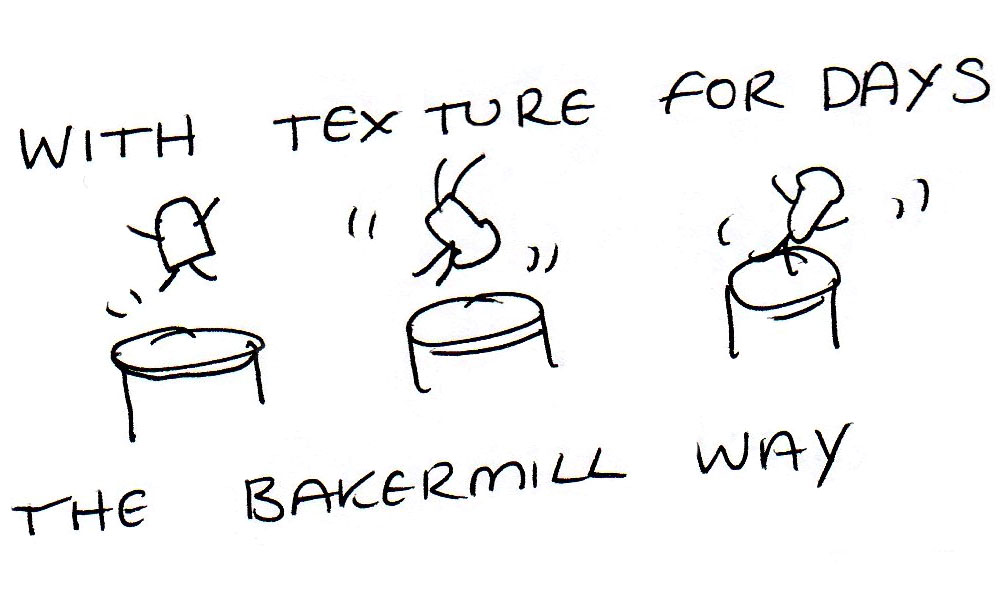 WITH TEXTURE FOR DAYS
THE BAKERMILL WAY